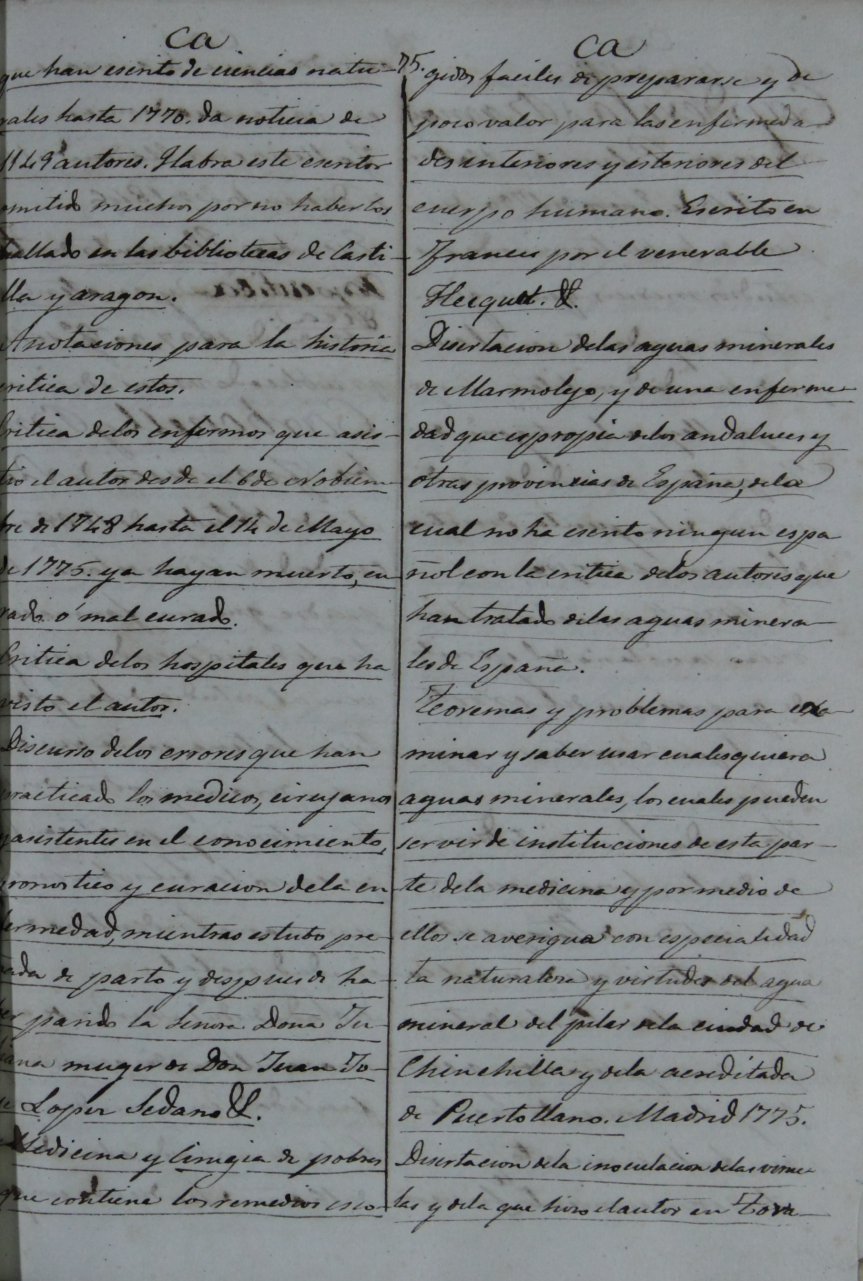 ca
que han escrito de ciencias natu-
rales hasta 1770. da noticia de
1149 autores. Habra este escritor
omitido muchos por no haberlos
hallado en las bibliotecas de Casti-
lla y aragon.
Anotaciones para la historia
critica de estos.
Critica delos enfermos que asis-
tio el autor desde el 6 de Nobiem-
bre de 1748 hasta el 14 de Mayo
de 1775. ya hayan muerto, cu-
rado ó mal curado.
Critica delos hospitales que ha
visto el autor.
Discurso delos errores que han
practicado los medicos, cirujanos
y asistentes en el conocimiento,
pronostico y curacion dela en-
fermedad, mientras estubo pre-
ñada de parto y despues de ha-
ber parido la Señora Doña Ju-
liana muger de Don Juan Jo-
se Lopez Sedano &.
Medicina y Cirugia de pobres
que contiene los remedios esco-
75.
ca
gidos faciles de prepararse y de
poco valor para las enfermeda-
des interiores y esteriores del
cuerpo humano. Escrito en
Frances por el venerable
Hecquet. &.
Disertacion delas aguas minerales
de Marmolejo, y de una enferme-
dad que es propia delos andaluces y
otras provincias de España, dela
cual no ha escrito ningun espa
ñol con la critica delos autores que
han tratado delas aguas minera-
les de España.
Teoremas y problemas para exa
minar y saber usar cualesquiera
aguas minerales, los cuales pueden
servir de instituciones de esta par-
te dela medicina y por medio de
ellos se averigua con especialidad
la naturaleza y virtudes del agua
mineral del pilar dela ciudad de
Chinchilla y dela acreditada
de Puertollano. Madrid 1775.
Disertacion dela inoculacion delas virue-
las y dela que hizo el autor en